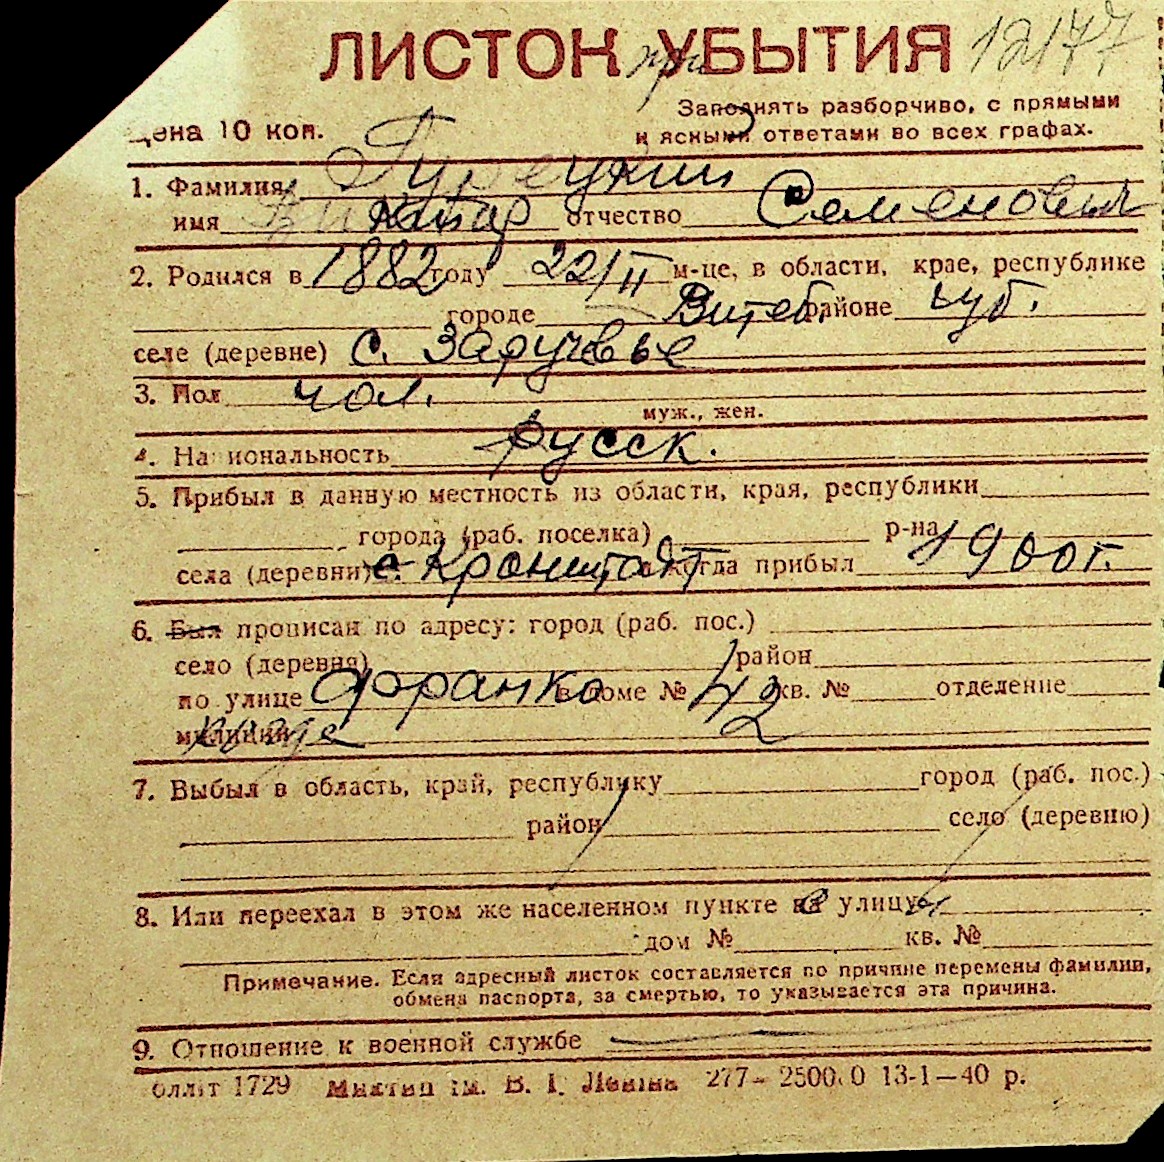 ЛИСТОК при УБЫТИЯ 12177
Заполнять разборчиво, с прямыми
Цена 10 коп. и ясными ответами во всех графах.
1. Фамилия
имя отчество Семенович
2. Родился в 1882 году 22/II м-це, в области, крае, республике
городе Витеб. районе губ.
селе (деревне) с. Заручевье
3. Пол чол.
муж., жен.
4. Национальность русск.
5. Прибыл в данную местность из области, края, республики
города (раб. поселка) р-на
села (деревни) с. Кронштадт и когда прибыл 1900 г.
6. Был прописан по адресу: город (раб. пос.)
село (деревня) район
по улице Франко в доме № 42 кв. № отделение
милиции
7. Выбыл в область, край, республику город (раб. пос.)
район село (деревню)
8. Или переехал в этом же населенном пункте на улицу
дом № кв. №
Примечание. Если адресный листок составляется по причине перемены фамилии,
обмена паспорта, за смертью, то указывается эта причина.
9. Отношение к военной службе
оллит 1729 ім. В. І. Леніна 277— 2500.0 13-1—40 р.